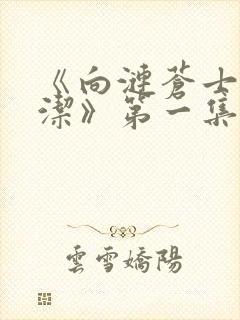 《向漣蒼士
潔》第一集
雲雪嬌陽